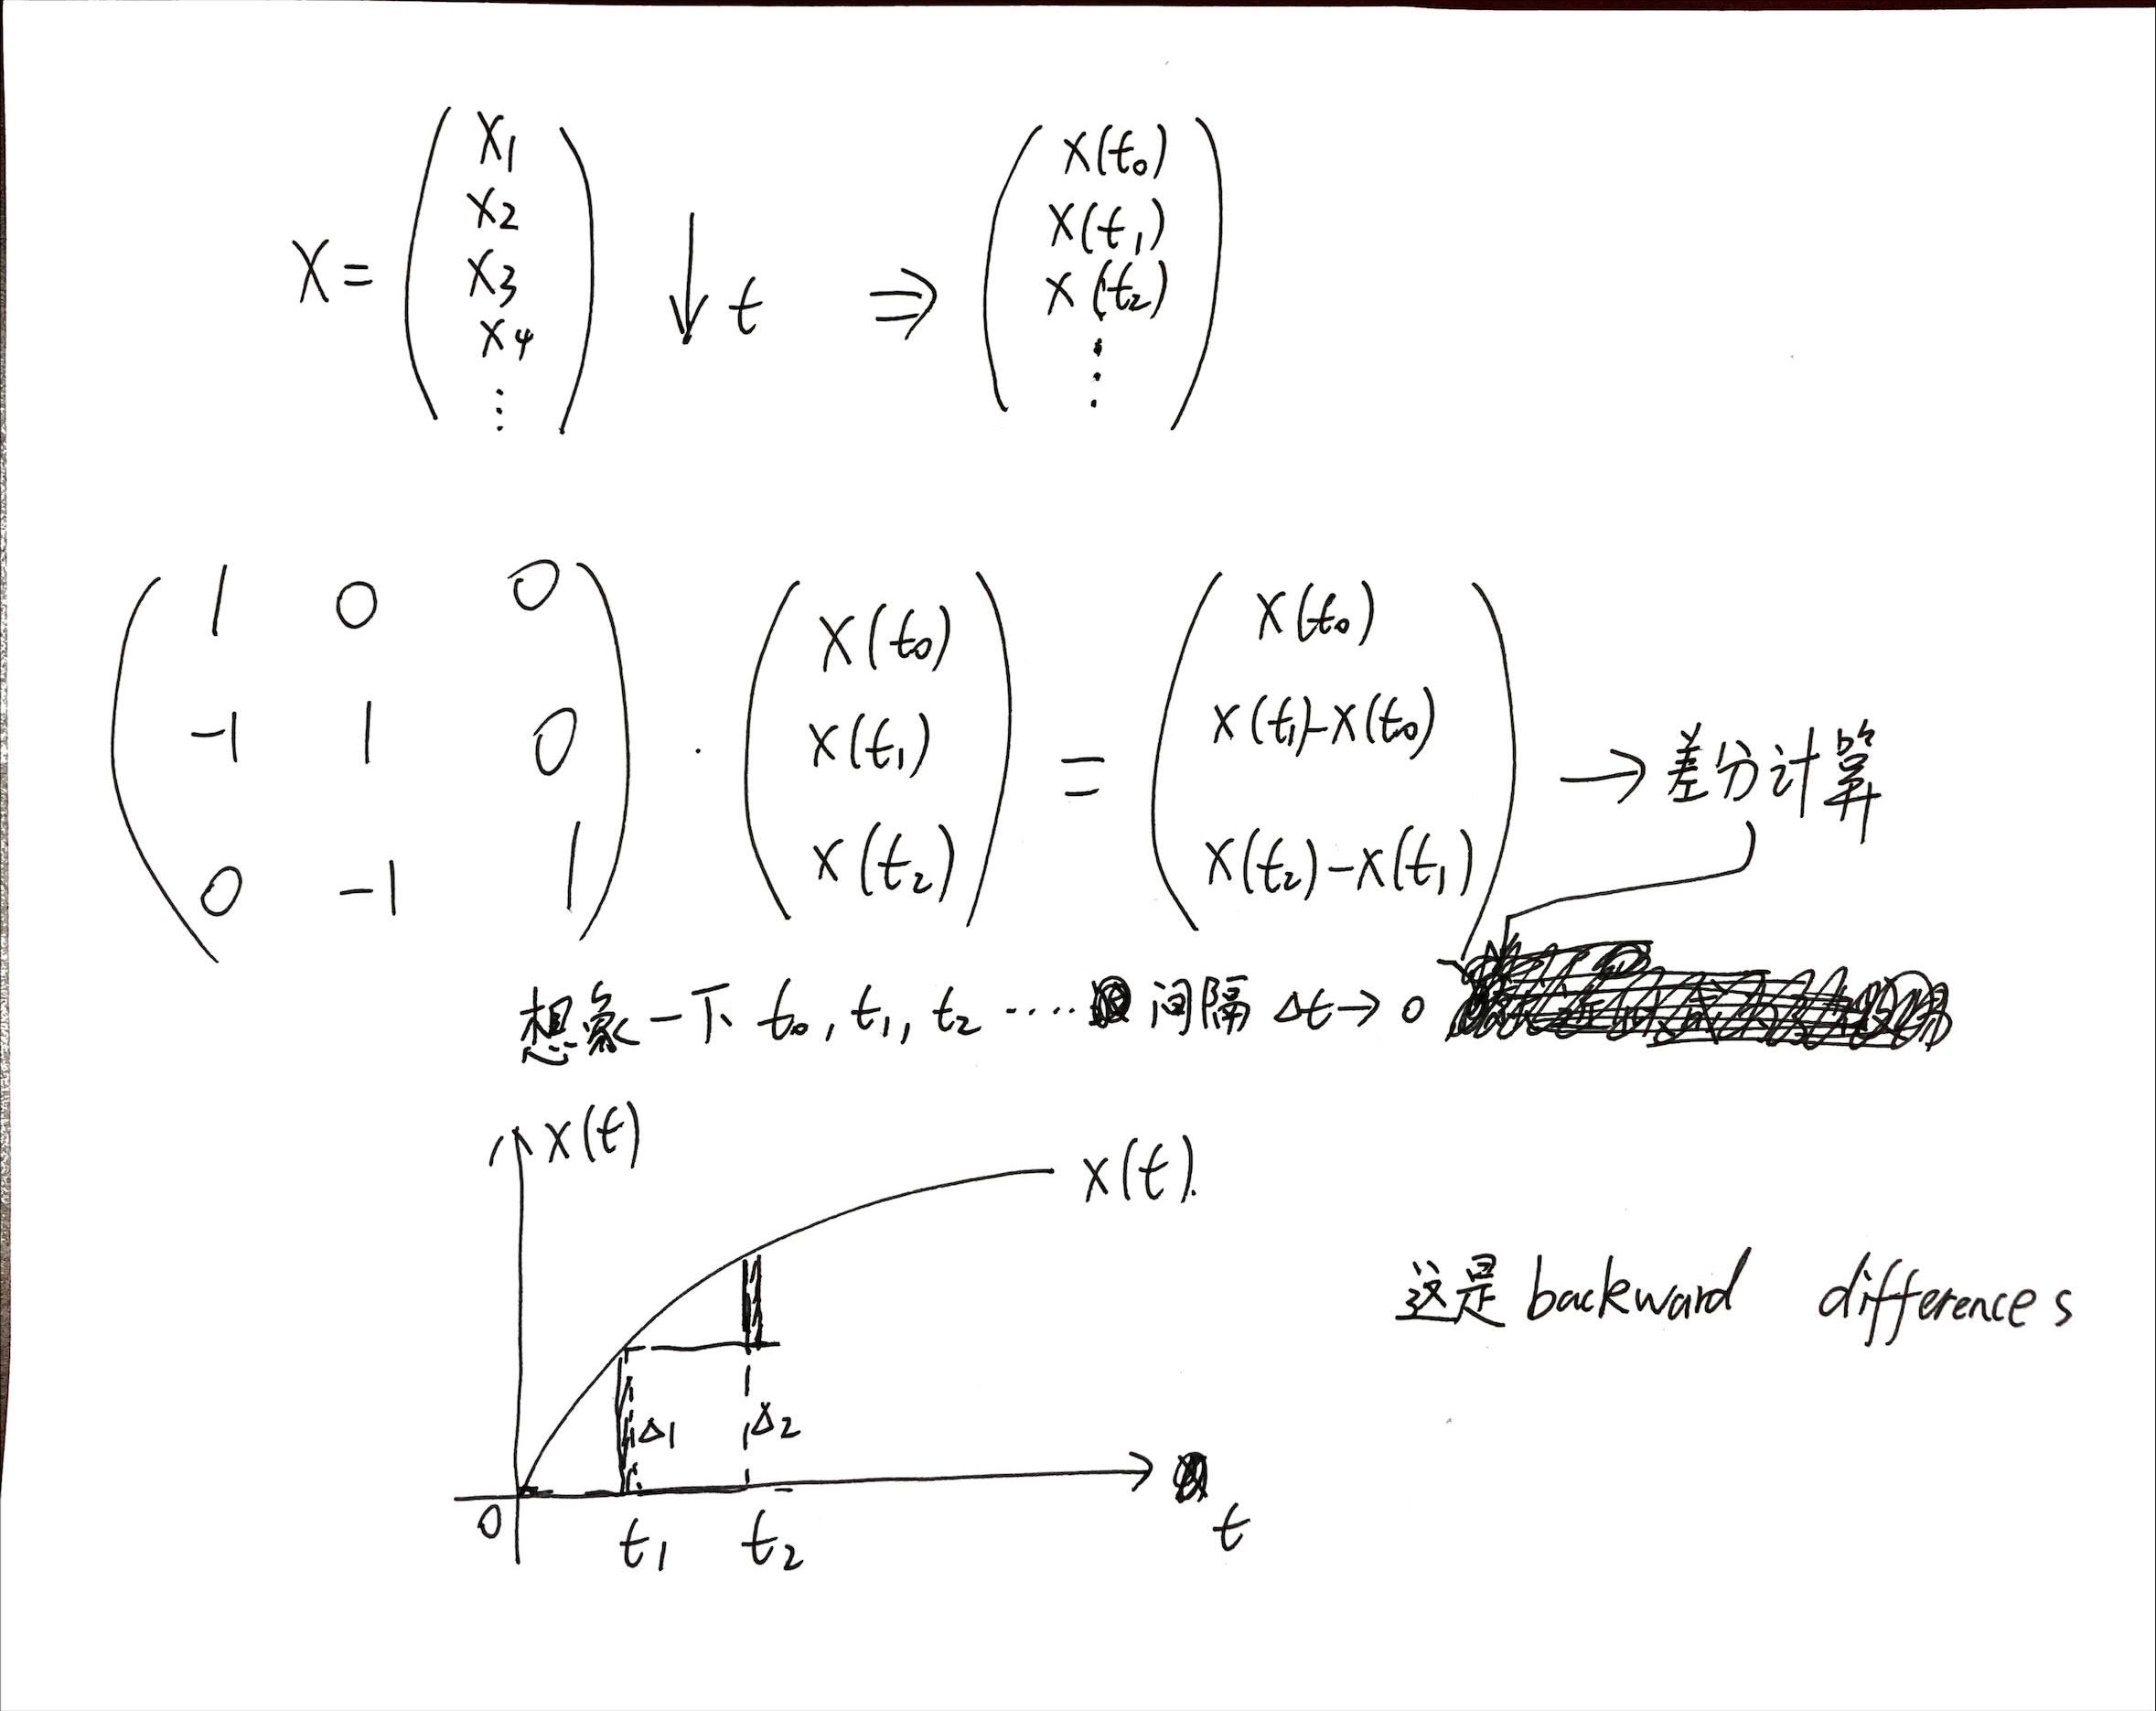 X = ( x1 x2 x3 x4 ⋮ ) ↓ t ⇒ ( x(t0) x(t1) x(t2) ⋮ )
( 1 0 0 -1 1 0 0 -1 1 ) · ( x(t0) x(t1) x(t2) ) = ( x(t0) x(t1)-x(t0) x(t2)-x(t1) ) → 差分计算
想象一下 t0, t1, t2 ····· 间隔 Δt→0
x(t)
x(t).
这是 backward differences
Δ1 Δ2
0 t1 t2 t